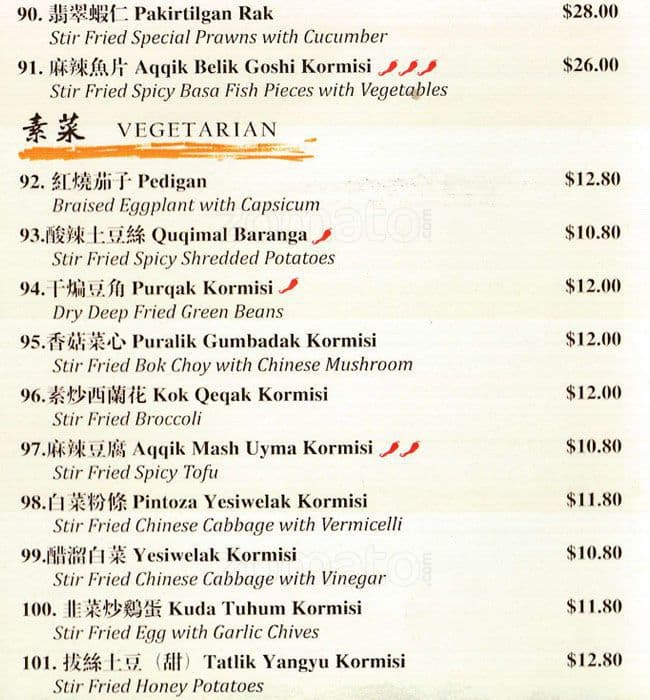 90. 翡翠蝦仁 Pakirtilgan Rak $28.00
Stir Fried Special Prawns with Cucumber
91. 麻辣魚片 Aqqik Belik Goshi Kormisi $26.00
Stir Fried Spicy Basa Fish Pieces with Vegetables
素菜 VEGETARIAN
92. 紅燒茄子 Pedigan $12.80
Braised Eggplant with Capsicum
93.酸辣土豆絲 Quqimal Baranga $10.80
Stir Fried Spicy Shredded Potatoes
94.干煸豆角 Purqak Kormisi $12.00
Dry Deep Fried Green Beans
95.香菇菜心 Puralik Gumbadak Kormisi $12.00
Stir Fried Bok Choy with Chinese Mushroom
96.素炒西蘭花 Kok Qeqak Kormisi $12.00
Stir Fried Broccoli
97.麻辣豆腐 Aqqik Mash Uyma Kormisi $10.80
Stir Fried Spicy Tofu
98.白菜粉條 Pintoza Yesiwelak Kormisi $11.80
Stir Fried Chinese Cabbage with Vermicelli
99.醋溜白菜 Yesiwelak Kormisi $10.80
Stir Fried Chinese Cabbage with Vinegar
100. 韭菜炒鷄蛋 Kuda Tuhum Kormisi $11.80
Stir Fried Egg with Garlic Chives
101. 拔絲土豆（甜）Tatlik Yangyu Kormisi $12.80
Stir Fried Honey Potatoes
zomato.com
zomato.com